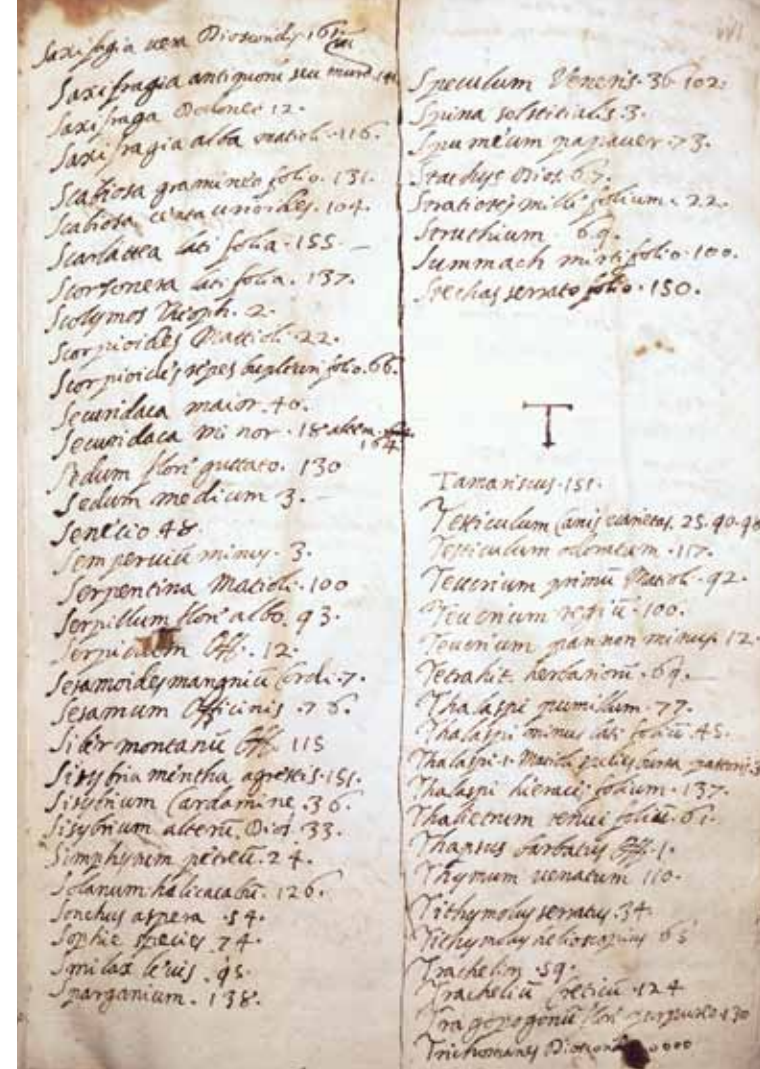 Saxifragia uera Dioscoridis 161
Saxifragia antiquorū seu murd. 141
Saxifraga Dodonei 12.
Saxifragia alba Matioli. 116.
Scabiosa gramineo folio. 131.
Scabiosa 104.
Scarlattea lati folia. 155.
Scorsonera lati folia. 137.
Scolymos Theoph. 2.
Scorpioides Mattioli. 22.
Scorpioides repes bupleuri folio. 66.
Securidaca maior. 40.
Securidaca mi nor. 18 164
Sedum flori guttato. 130
Sedum medium 3.
Senecio 48.
Semperuiuū minus. 3.
Serpentina Matioli. 100
Serpillum flori albo. 93.
Off. 12.
Sesamoides mangniū Cordi. 7.
Sesamum Officinis. 76.
Siler montanū Off. 115
Sisybria mentha agrestis. 151.
Sisybrium Cardamine. 36.
Sisybrium alterū. Dios. 33.
Simphytum petreū. 24.
Solanum halicacabū. 126.
Sonchus aspera. 54.
Sophie species 74.
Smilax leuis. 95.
Sparganium. 138.
Speculum Veneris. 36. 102.
Spina solstitialis. 3.
Spumeum papauer. 73.
Stachys Dios. 67.
Stratiotes mille folium. 22.
Struthium. 69.
Summach mirti folio. 100.
Stechas serrato folio. 150.
T
Tamariscus. 151.
Testiculum Canis uarietas. 25. 90. 98
Testiculum odoratum. 117.
Teucrium primū Matioli. 92.
Teucrium regiū. 100.
Teucrium pannon minus. 12.
Tetrahit herbariorū. 69.
Thalaspi pumillum. 77.
Thalaspi minus lati foliū. 45.
Thalaspi. 1. Matioli bursa pastoris. 3
Thalaspi hieraci folium. 137.
Thalictrum tenui foliū. 61.
Thapsus barbatus Off. 1.
Thymum uenatum 110.
Tithymolus serratus. 34.
Tithymolus helioscopius 65
Trachelin. 59.
Tracheliū Creticū. 124
Tragopogonū flori purpureo. 130
Trichomanes Dioscoridis